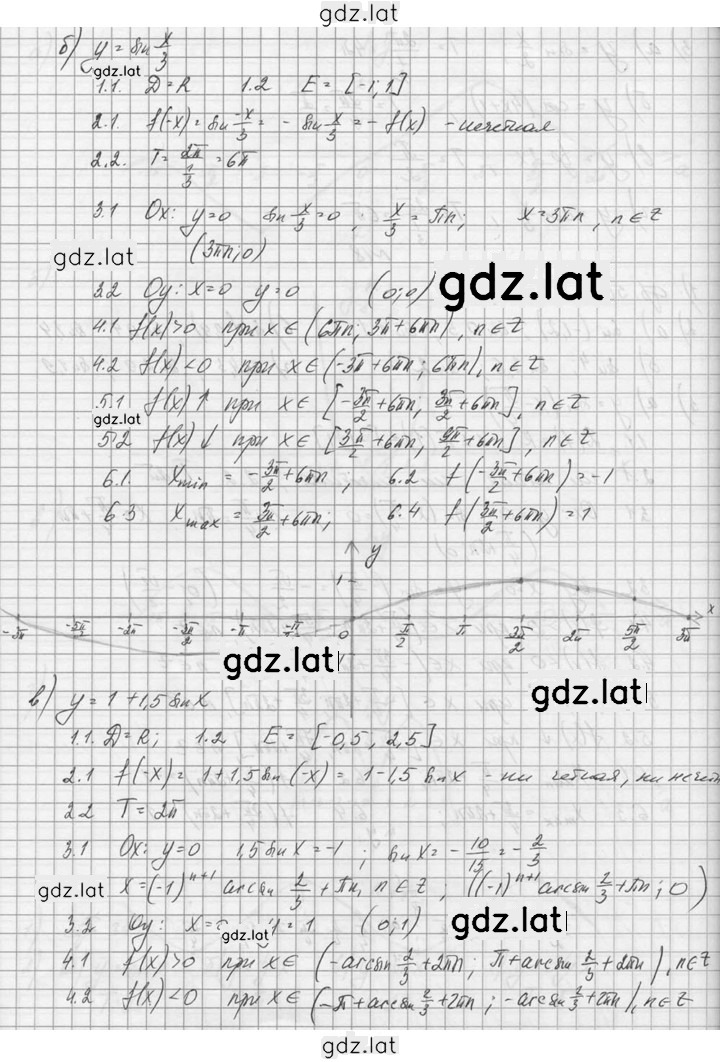 gdz.lat
б) y = sin x/3
gdz.lat
1.1. D = R   1.2   E = [-1; 1]
2.1. f(-x) = sin -x/3 = - sin x/3 = - f(x) - нечетная
2.2. T = 2π/(1/3) = 6π
3.1 Ox: y=0   sin x/3 = 0 ; x/3 = πn;   x = 3πn, n∈Z
gdz.lat (3πn; 0)
3.2 Oy: x=0  y=0   (0; 0) gdz.lat
4.1 f(x)>0 при x∈ (6πn; 3π+6πn), n∈Z
4.2 f(x)<0 при x∈ (-3π+6πn; 6πn), n∈Z
5.1 f(x)↑ при x∈ [-3π/2+6πn; 3π/2+6πn], n∈Z
gdz.lat
5.2 f(x)↓ при x∈ [3π/2+6πn; 9π/2+6πn], n∈Z
6.1. x min = -3π/2+6πn;   6.2   f(-3π/2+6πn) = -1
6.3 x max = 3π/2+6πn;   6.4   f(3π/2+6πn) = 1
y
1
x
-3π -5π/2 -2π -3π/2 -π -π/2 0 π/2 π 3π/2 2π 5π/2 3π
gdz.lat gdz.lat
в) y = 1 + 1,5 sin x
1.1. D=R;   1.2   E = [-0,5, 2,5]
2.1 f(-x) = 1+1,5 sin (-x) = 1-1,5 sin x - ни четная, ни нечет
2.2 T = 2π
3.1 Ox: y=0   1,5 sin x = -1 ; sin x = - 10/15 = - 2/3
gdz.lat x = (-1)^n+1 arcsin 2/3 + πn, n∈Z ; ((-1)^n+1 arcsin 2/3 + πn; 0)
3.2 Oy: x= = 1   (0; 1)
gdz.lat gdz.lat
4.1 f(x)>0 при x∈ (-arcsin 2/3 + 2πn; π+arcsin 2/3 + 2πn), n∈Z
4.2 f(x)<0 при x∈ (-π+arcsin 2/3+2πn; -arcsin 2/3+2πn), n∈Z
gdz.lat